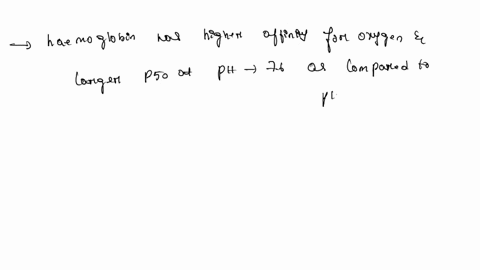 → haemoglobin has higher affinity for oxygen &
larger P50 at PH → 7.6 as compared to